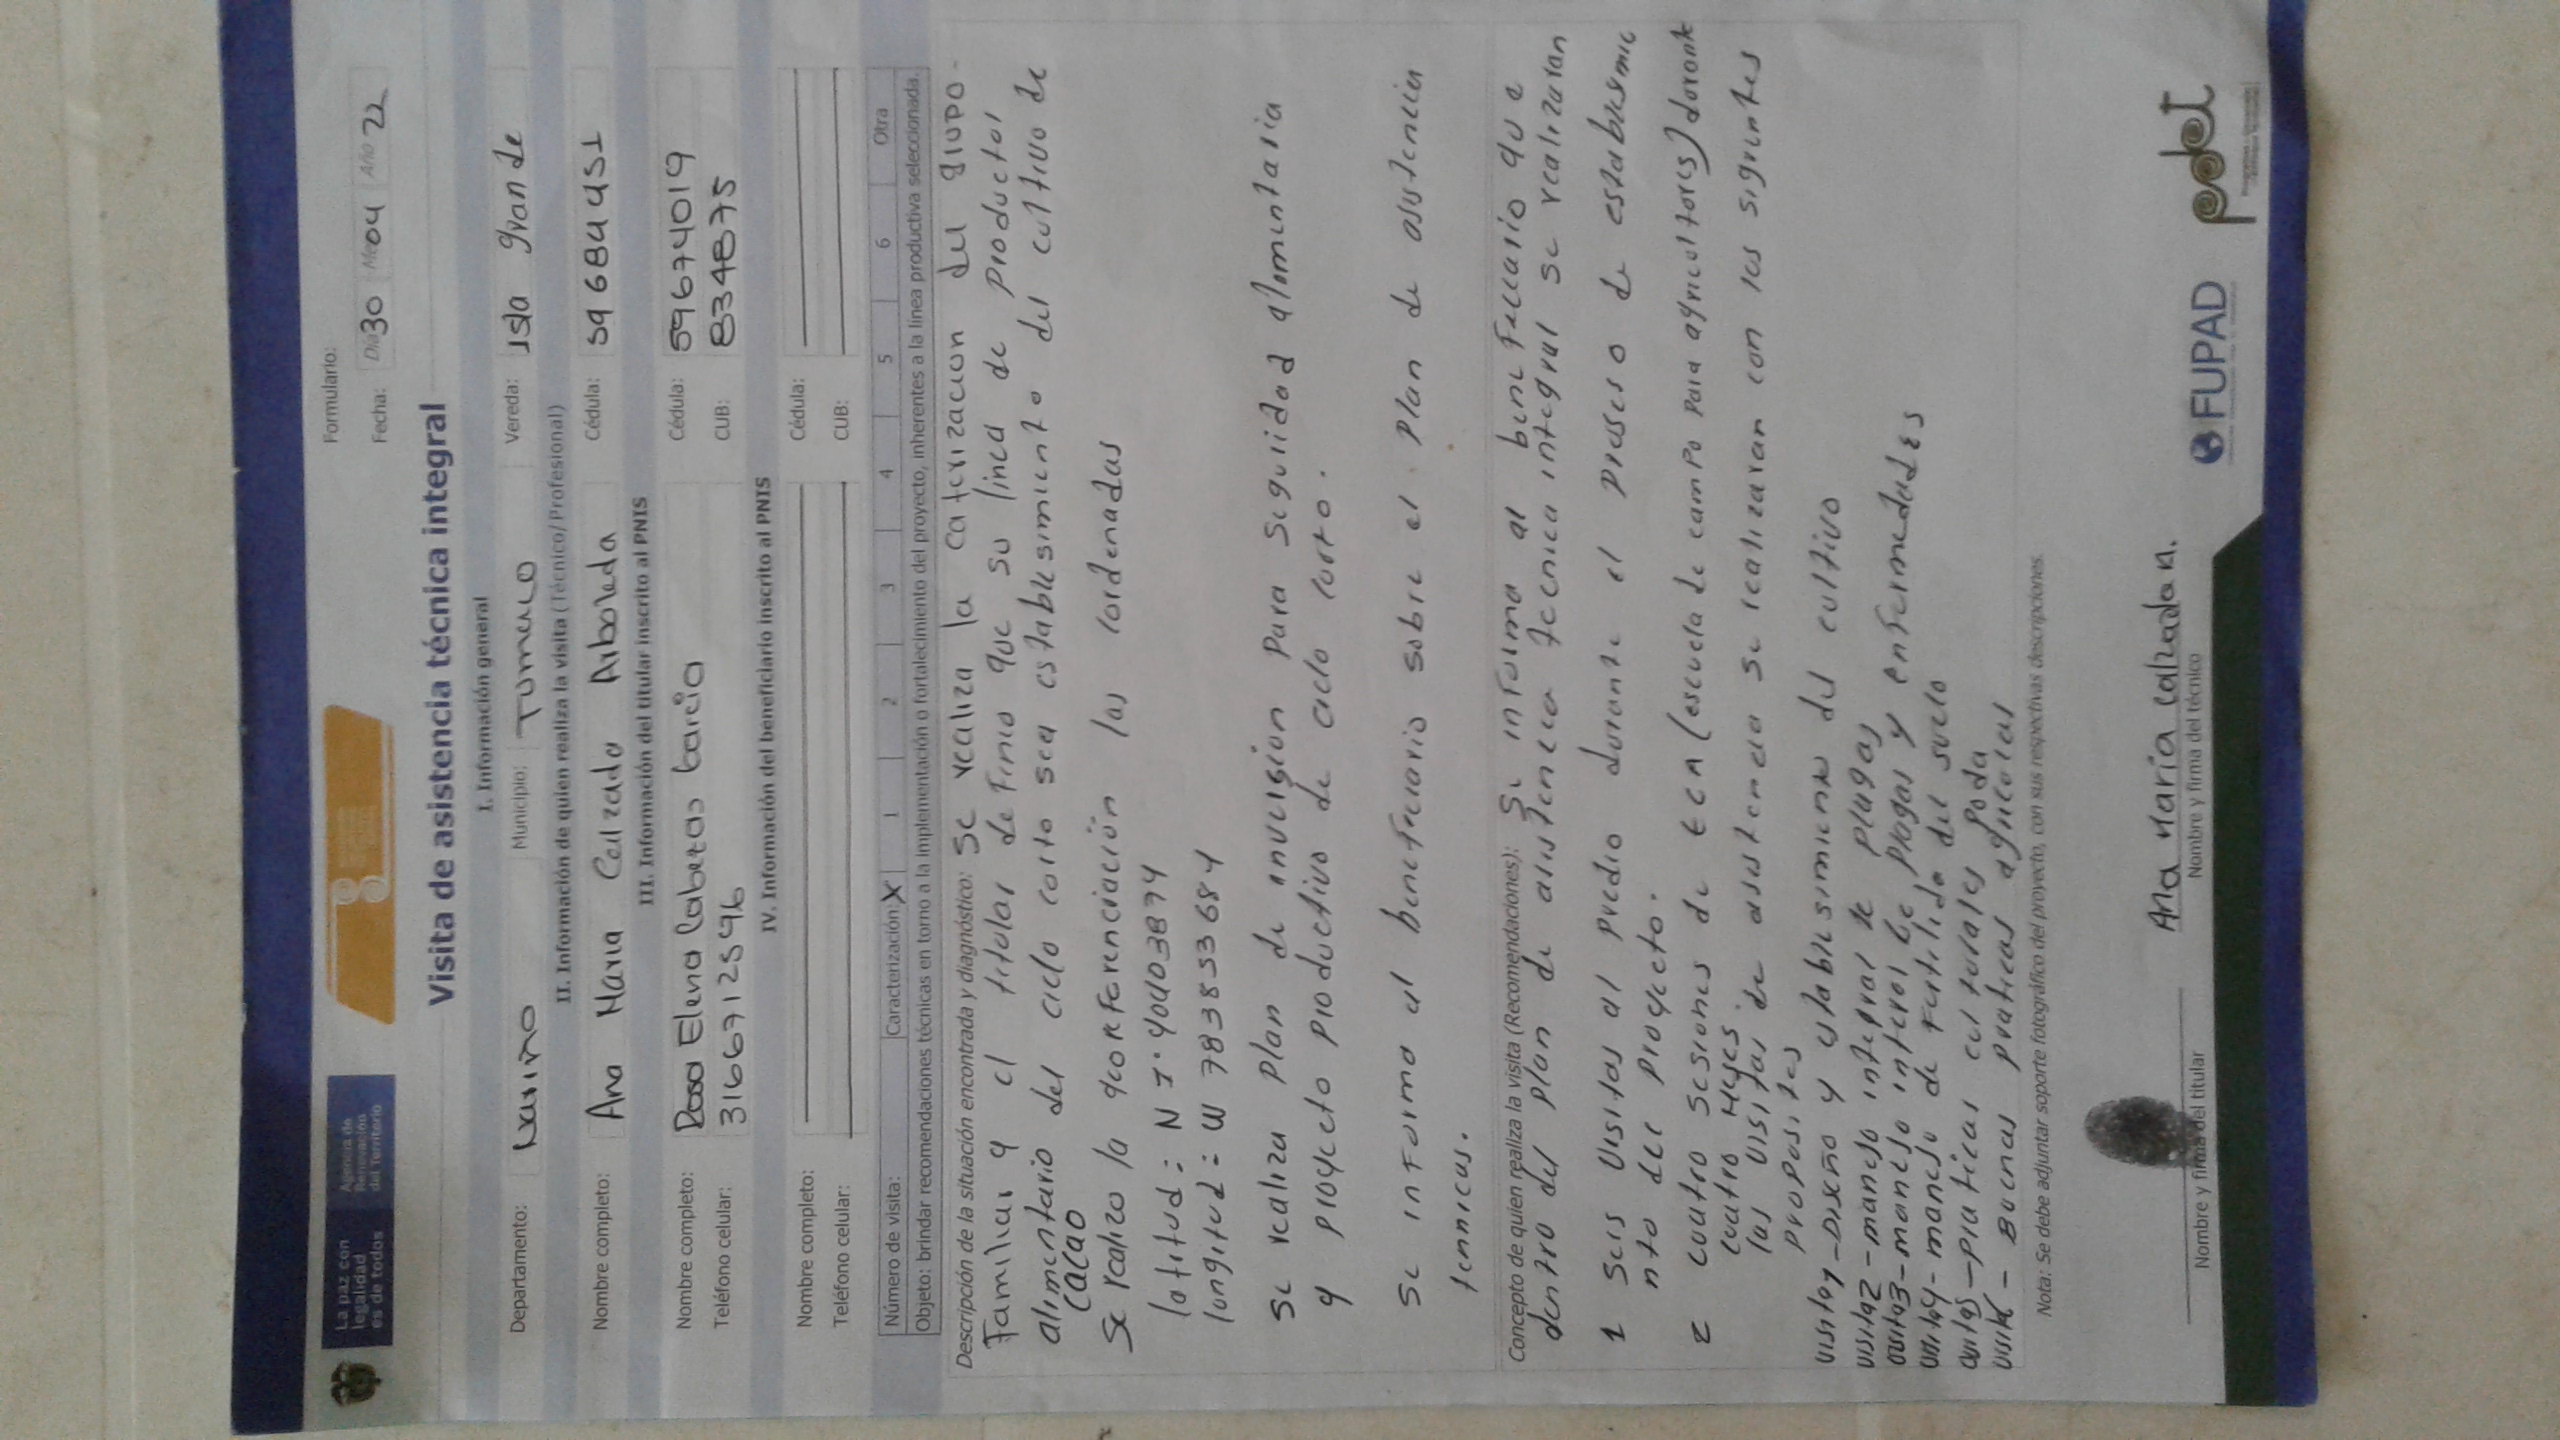 La paz con
legalidad
es de todos
Agencia de
Renovación
del Territorio
Formulario:
Fecha: Día 30 Mes 04 Año 22
Visita de asistencia técnica integral
I. Información general
Departamento: Nariño Municipio: Tumaco Vereda: Isla grande
II. Información de quien realiza la visita (Técnico/Profesional)
Nombre completo: Ana Maria Calzada Arboleda Cédula: 59684451
III. Información del titular inscrito al PNIS
Nombre completo: Rosa Elena Cabezas Garcia Cédula: 59674019
Teléfono celular: 3166712596 CUB: 8348875
IV. Información del beneficiario inscrito al PNIS
Nombre completo: Cédula:
Teléfono celular: CUB:
Número de visita: Caracterización: X 1 2 3 4 5 6 Otra
Objeto: brindar recomendaciones técnicas en torno a la implementación o fortalecimiento del proyecto, inherentes a la línea productiva seleccionada.
Descripción de la situación encontrada y diagnóstico: Se realiza la caterizacion del grupo
Familiar y el titular definio que su linea de productor
alimentario del ciclo corto sea establesimiento del cultivo de
cacao
Se realizo la georeferenciación las cordenadas
latitud: N 1.40403874
longitud: W 783853684
Se realiza plan de inversion para seguridad alimentaria
y proyecto productivo de ciclo corto.
Se informa al beneficiario sobre el plan de asistencia
tennicas.
Concepto de quien realiza la visita (Recomendaciones): Se informa al beneficiario que e
dentro del plan de asistencia tecnica integral se realizaran
1 Seis visitas al predio durante el proseso de establesimie
nto del proyecto.
2 cuatro sesiones de ECA (escuela de campo para agricultores) durante
cuatro meses.
las visitas de asistencia se realizaran con los siguientes
propositos
visita1 - Diseño y establesimiento del cultivo
visita2 - manejo integral de plagas
visita3 - manejo integral de plagas y enfermedades
visita4 - manejo de fertilidad del suelo
visita5 - platicas culturales poda
visita6 - Buenas praticas agricolas
Nota: Se debe adjuntar soporte fotográfico del proyecto, con sus respectivas descripciones.
Ana Maria calzada n.
Nombre y firma del titular Nombre y firma del técnico
FUPAD
pdet